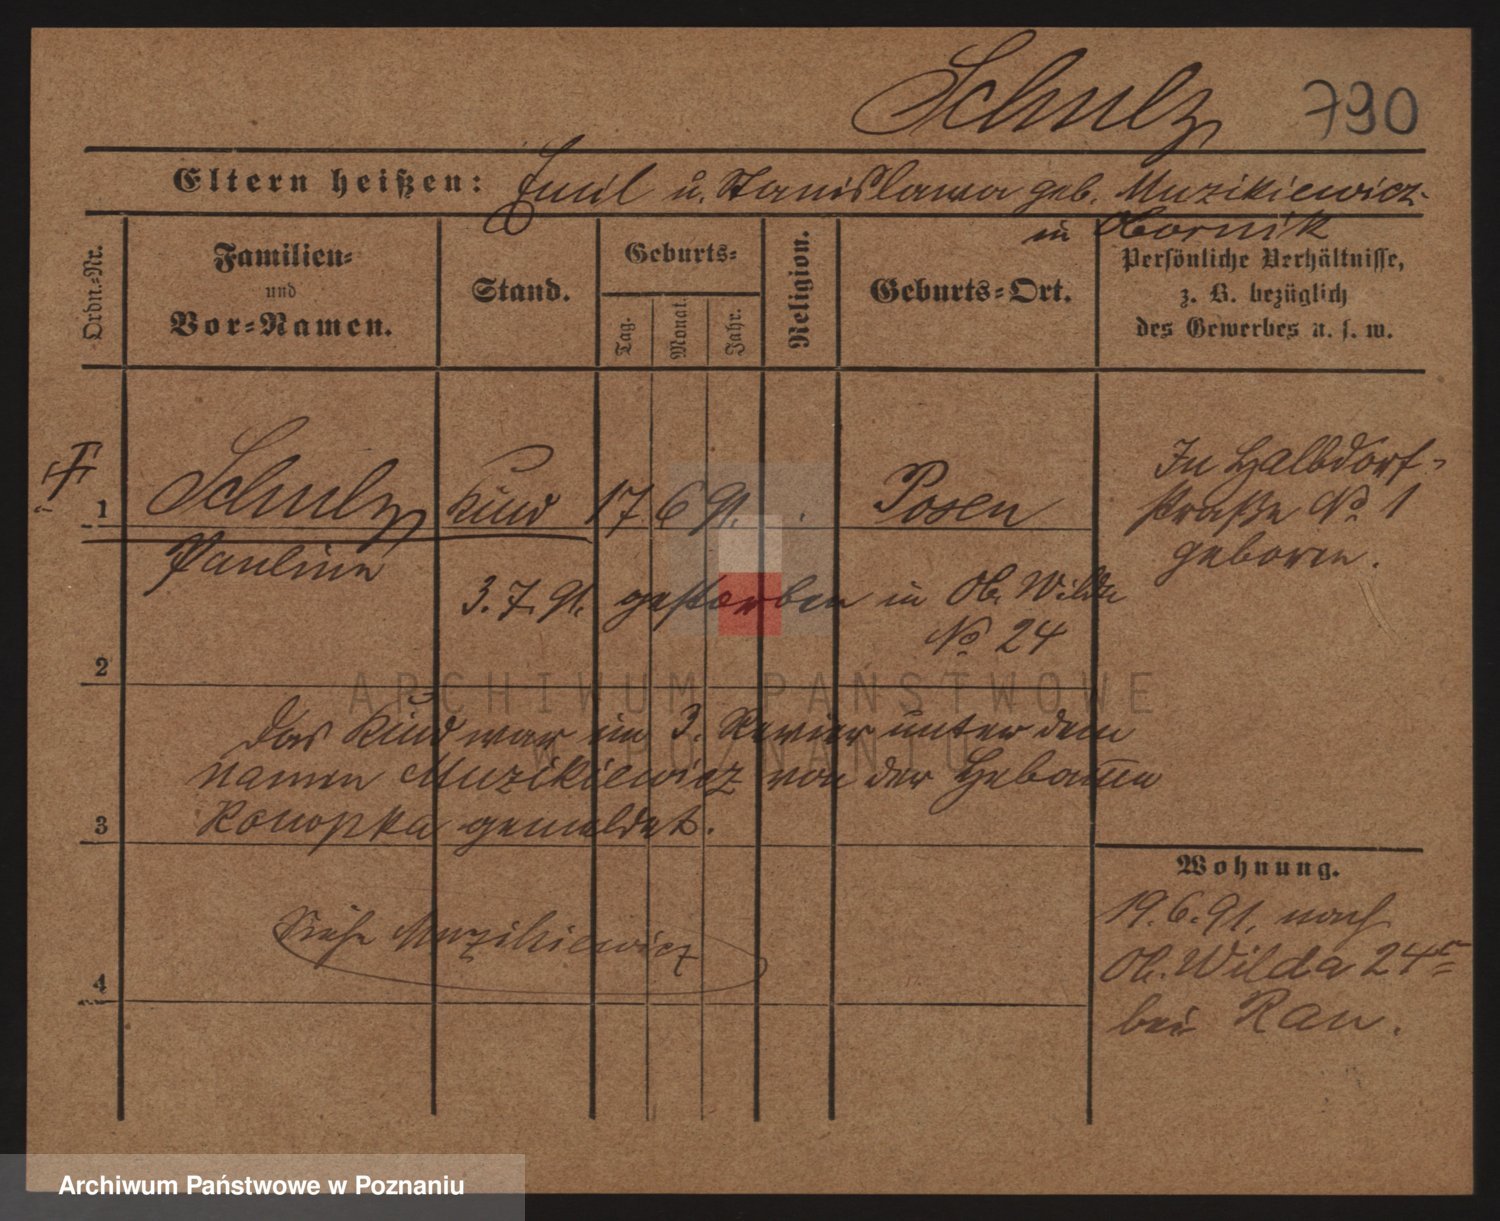 Schulz 790
Eltern heißen: Emil u. Stanislawa geb. Muzikiewicz
in Obornik
Ordn.-Nr.
Familien-
und
Vor-Namen.
Stand.
Geburts-
Tag.
Monat.
Jahr.
Religion.
Geburts-Ort.
Persönliche Verhältnisse,
z. B. bezüglich
des Gewerbes u. s. w.
1 Schulz Kind 17. 6 91. Posen
Pauline
In Halbdorf-
straße No 1
geboren.
3. 7. 91. gestorben in Ob. Wilda
No 24
2
Das Kind war im 3. Revier unter dem
Namen Muzikiewicz von der Hebamme
3 Konopka gemeldet.
Siehe Muzikiewicz
4
Wohnung.
19. 6. 91. nach
Ob. Wilda 24
bei Rau.
ARCHIWUM PAŃSTWOWE
W POZNANIU
Archiwum Państwowe w Poznaniu